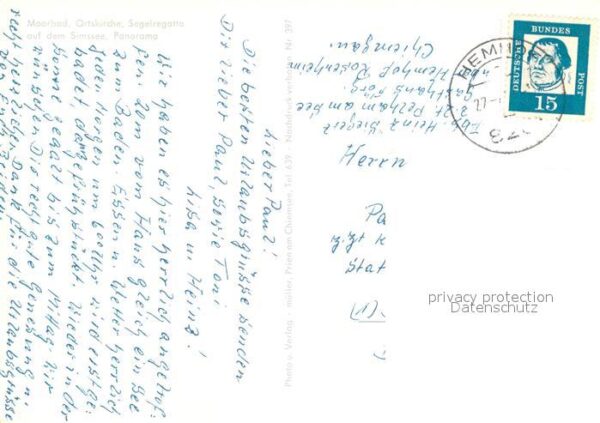 Moorbad, Ortskirche, Segelregatta
auf dem Simssee, Panorama
Lieber Paul!
Wir haben es hier herrlich angetrof:
fen 20m vom Haus gleich ein See
zum Baden. Essen u. Wetter herrlich
jeden Morgen um 6 Uhr wird erst ge:
badet dann gefrühstückt. Wieder in der
Sonne gegalt bis zum Mittag. Wir
wünschen Dir recht gute Genesung u.
recht herzlichen Dank für die Urlaubsgrüsse
Die besten Urlaubsgrüsse senden
Dir lieber Paul, sowie Toni
Lisa u. Heinz!
Photo u. Verlag müller, Prien am Chiemsee, Tel 639 Nachdruck verboten Nr. 397
Abs. Heinz
z. Zt. Pelham am See
Gasthaus
über Hemhof Rosenheim
Chiemgau.
DEUTSCHE BUNDESPOST
15
HEMH
Herrn
Pa
z. Zt K
Stat
privacy protection
Datenschutz